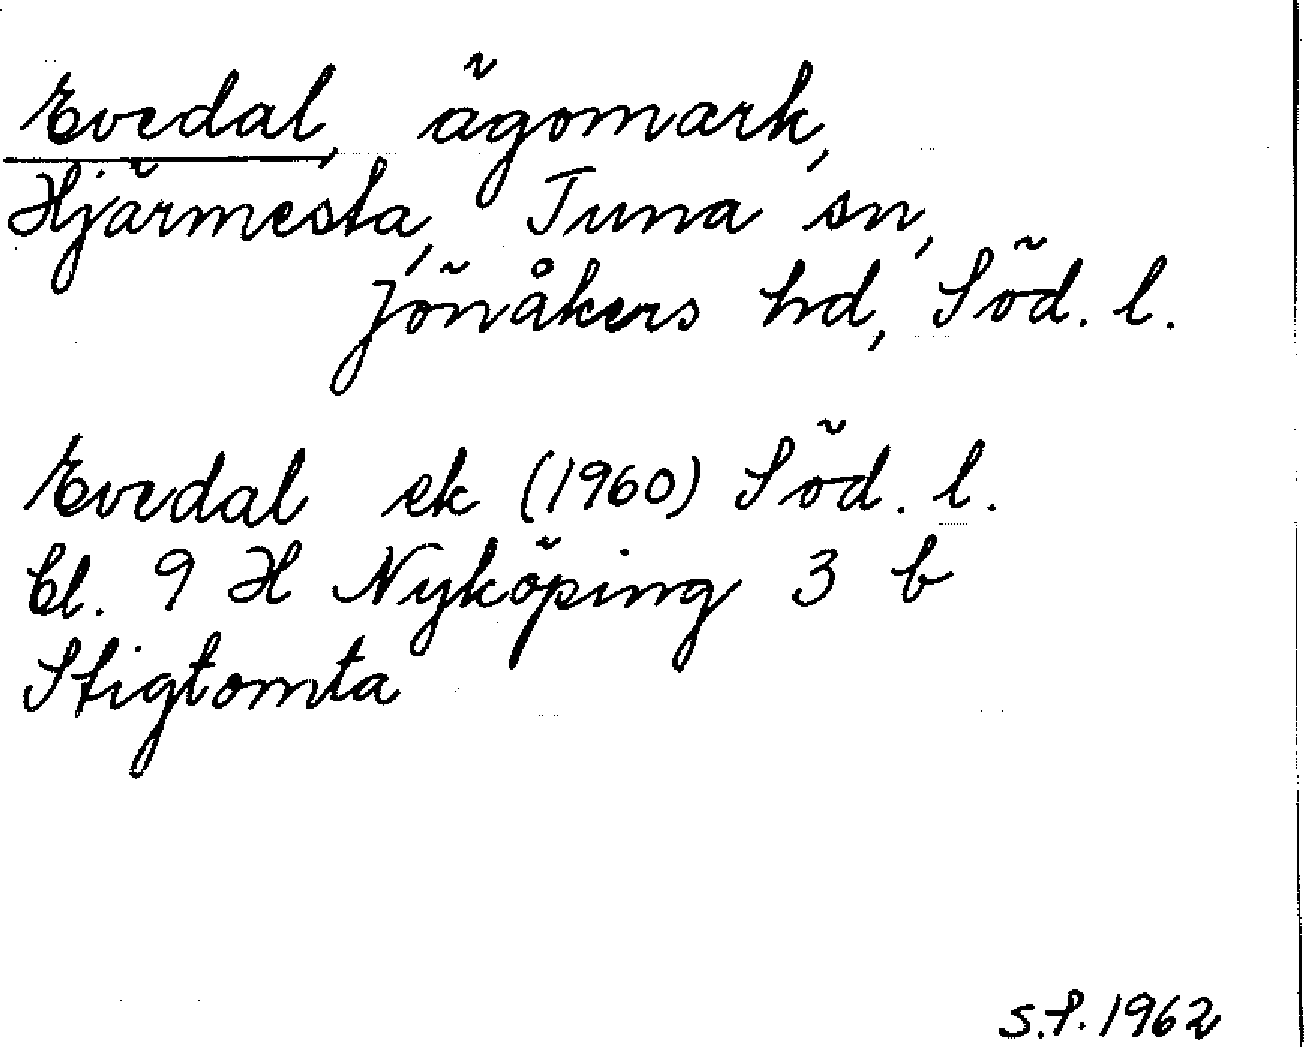 Evedal, ägomark,
Hjärmesta, Tuna sn,
Jönåkers hd, Söd. l.
Evedal ek (1960) Söd. l.
bl. 9 H Nyköping 3 b
Stigtomta
S.P. 1962